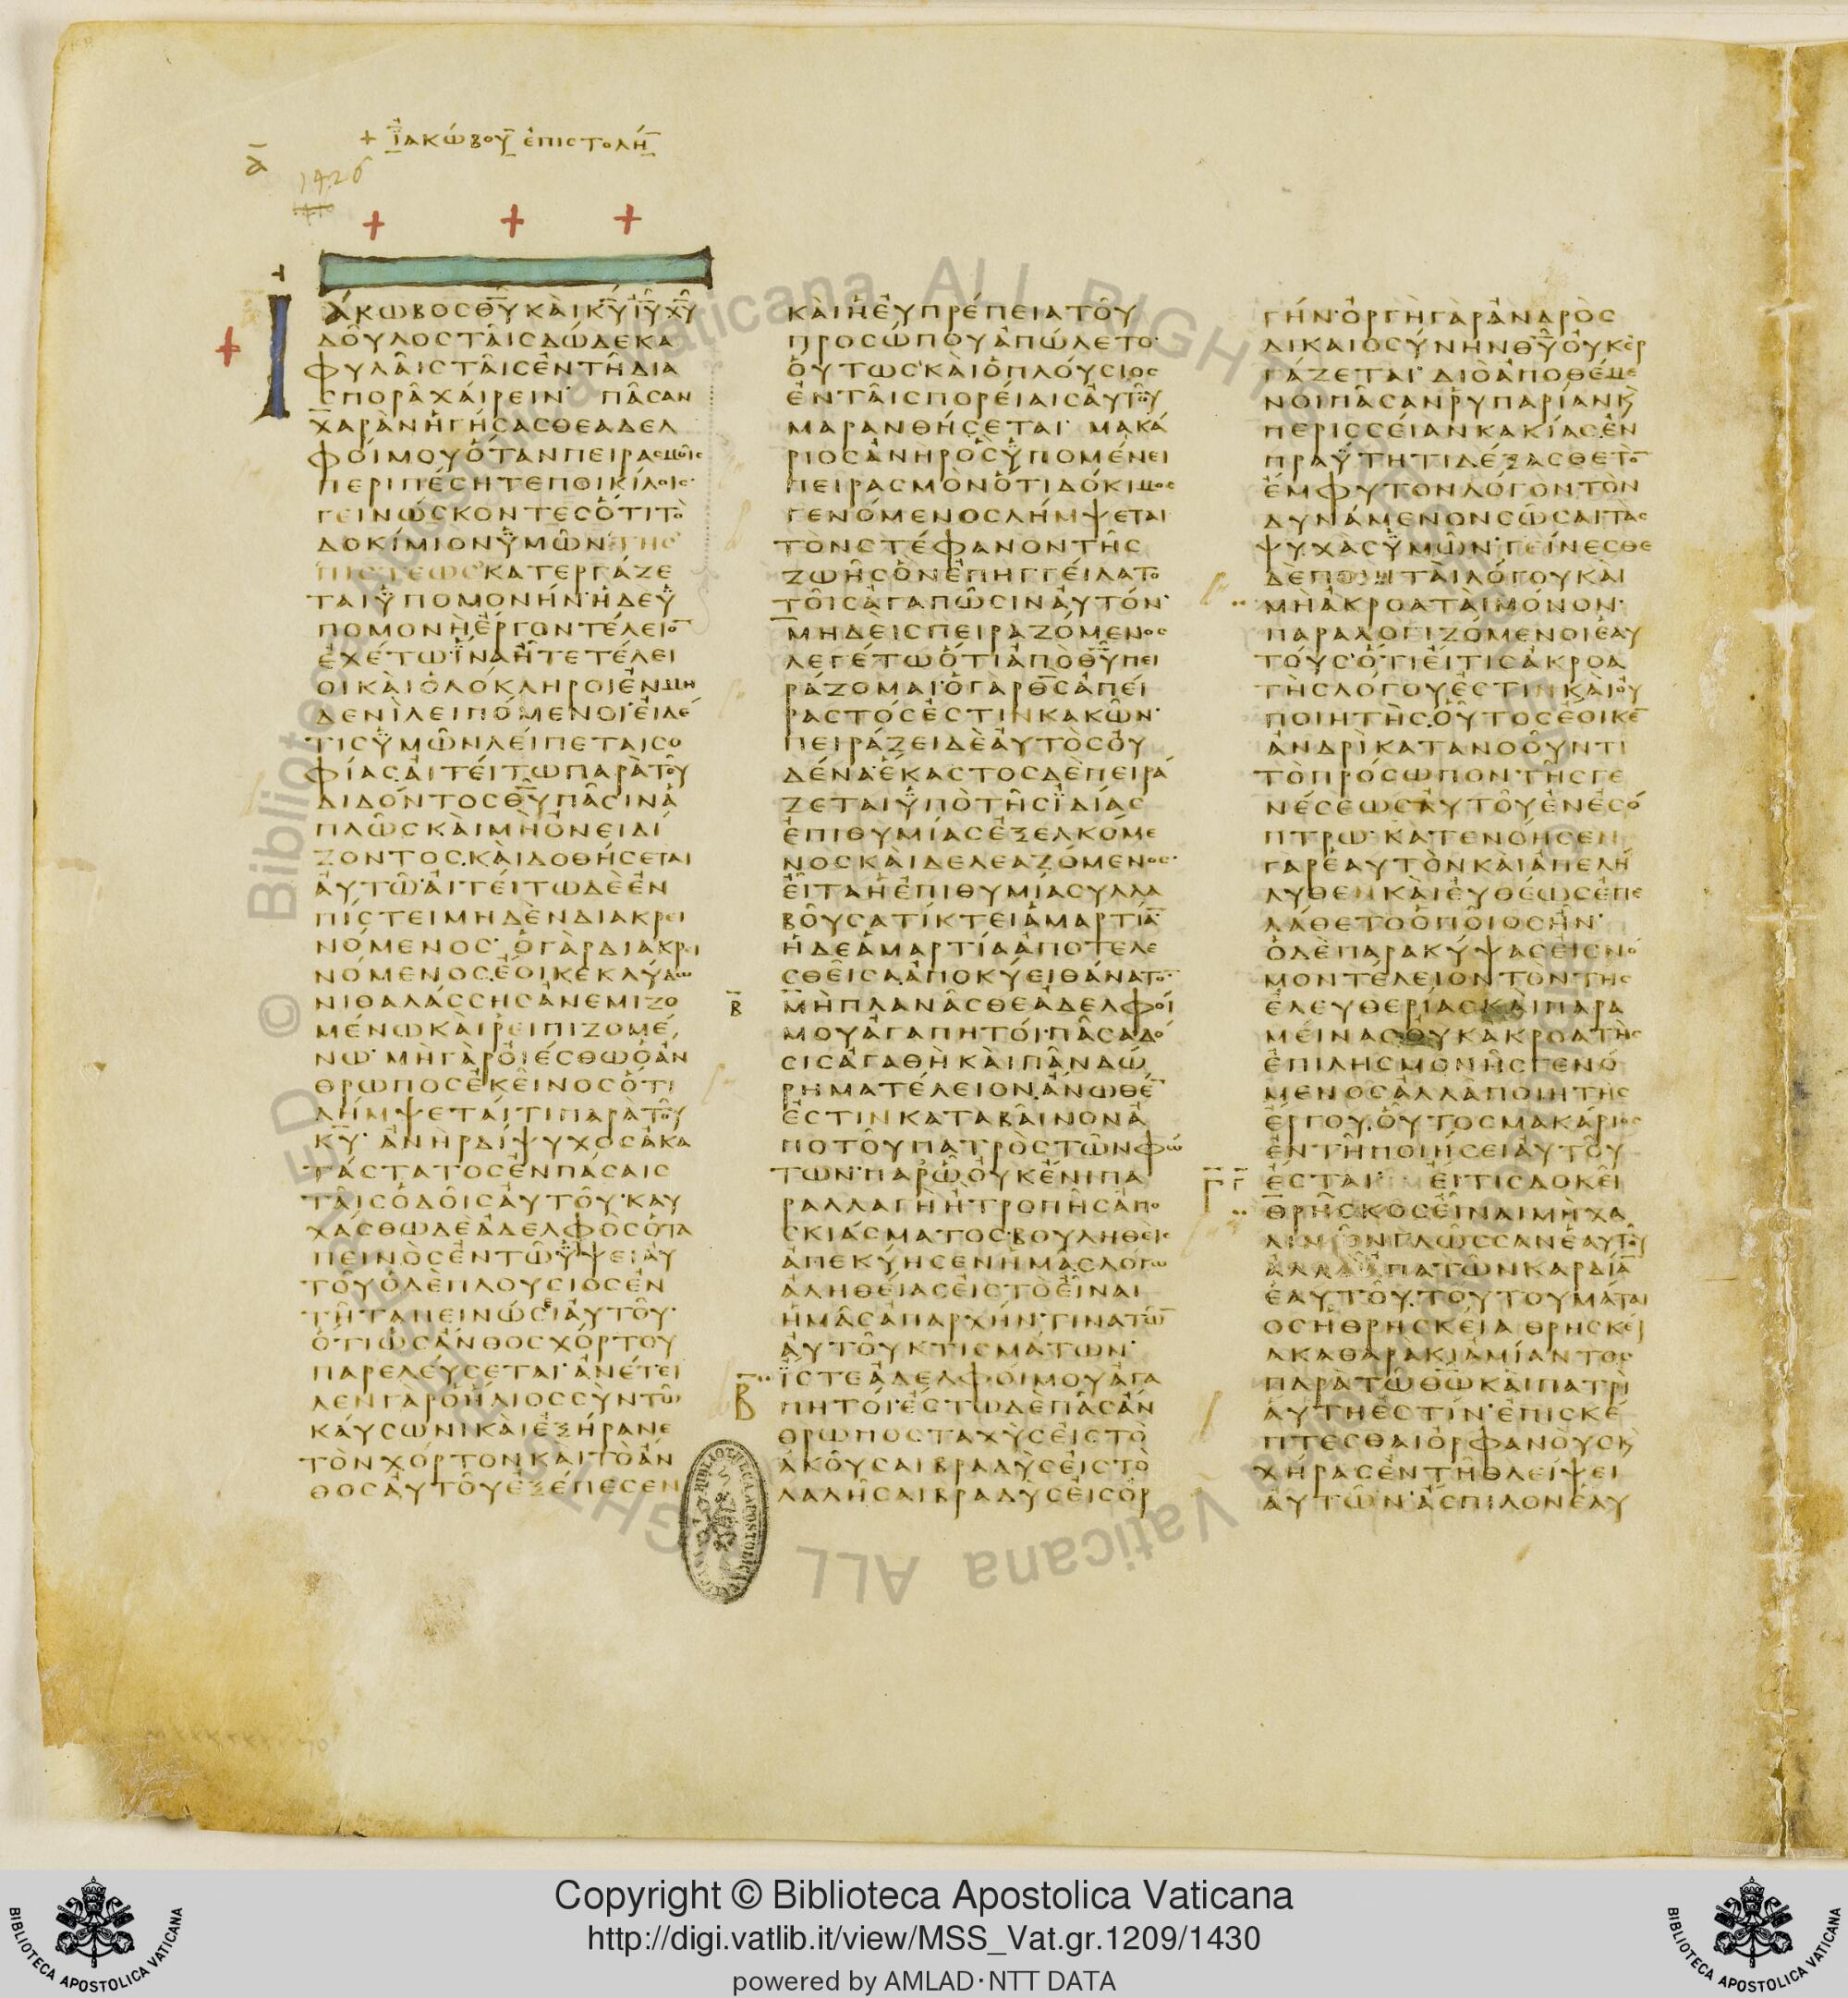 + ἸΑΚΏΒΟΥ ἘΠΙΣΤΟΛΉ
Α
1426
ΙΑΚΩΒΟϹΘΥΚΑΙΚΥΙΥΧΥ
ΔΟΥΛΟϹΤΑΙϹΔΩΔΕΚΑ
ΦΥΛΑΙϹΤΑΙϹΕΝΤΗΔΙΑ
ϹΠΟΡΑΧΑΙΡΕΙΝ· ΠΑϹΑΝ
ΧΑΡΑΝΗΓΗϹΑϹΘΕΑΔΕΛ
ΦΟΙΜΟΥΟΤΑΝΠΕΙΡΑϹΜΟΙϹ
ΠΕΡΙΠΕϹΗΤΕΠΟΙΚΙΛΟΙϹ·
ΓΕΙΝΩϹΚΟΝΤΕϹΟΤΙΤΟ
ΔΟΚΙΜΙΟΝΥΜΩΝΤΗϹ
ΠΙϹΤΕΩϹΚΑΤΕΡΓΑΖΕ
ΤΑΙΥΠΟΜΟΝΗΝ·ΗΔΕΥ
ΠΟΜΟΝΗΕΡΓΟΝΤΕΛΕΙΟ̅
ΕΧΕΤΩ·ΙΝΑΗΤΕΤΕΛΕΙ
ΟΙΚΑΙΟΛΟΚΛΗΡΟΙΕΝΜΗ
ΔΕΝΙΛΕΙΠΟΜΕΝΟΙ·ΕΙΔΕ
ΤΙϹΥΜΩΝΛΕΙΠΕΤΑΙϹΟ
ΦΙΑϹ.ΑΙΤΕΙΤΩΠΑΡΑΤΟΥ
ΔΙΔΟΝΤΟϹΘΥΠΑϹΙΝΑ
ΠΛΩϹΚΑΙΜΗΟΝΕΙΔΙ
ΖΟΝΤΟϹ.ΚΑΙΔΟΘΗϹΕΤΑΙ
ΑΥΤΩ·ΑΙΤΕΙΤΩΔΕΕΝ
ΠΙϹΤΕΙΜΗΔΕΝΔΙΑΚΡΕΙ
ΝΟΜΕΝΟϹ· ΟΓΑΡΔΙΑΚΡΕΙ
ΝΟΜΕΝΟϹ.ΕΟΙΚΕΚΛΥΔΩ
ΝΙΘΑΛΑϹϹΗϹΑΝΕΜΙΖΟ
ΜΕΝΩΚΑΙΡΕΙΠΙΖΟΜΕ
ΝΩ· ΜΗΓΑΡΟΙΕϹΘΩΟΑΝ
ΘΡΩΠΟϹΕΚΕΙΝΟϹΟΤΙ
ΛΗΜΨΕΤΑΙΤΙΠΑΡΑΤΟΥ
ΚΥ· ΑΝΗΡΔΙΨΥΧΟϹΑΚΑ
ΤΑϹΤΑΤΟϹΕΝΠΑϹΑΙϹ
ΤΑΙϹΟΔΟΙϹΑΥΤΟΥ·ΚΑΥ
ΧΑϹΘΩΔΕΑΔΕΛΦΟϹΟΤΑ
ΠΕΙΝΟϹΕΝΤΩΥΨΕΙΑΥ
ΤΟΥΟΔΕΠΛΟΥϹΙΟϹΕΝ
ΤΗΤΑΠΕΙΝΩϹΙΑΥΤΟΥ·
ΟΤΙΩϹΑΝΘΟϹΧΟΡΤΟΥ
ΠΑΡΕΛΕΥϹΕΤΑΙ·ΑΝΕΤΕΙ
ΛΕΝΓΑΡΟΗΛΙΟϹϹΥΝΤΩ
ΚΑΥϹΩΝΙΚΑΙΕΞΗΡΑΝΕ
ΤΟΝΧΟΡΤΟΝΚΑΙΤΟΑΝ
ΘΟϹΑΥΤΟΥΕΞΕΠΕϹΕΝ
ΚΑΙΗΕΥΠΡΕΠΕΙΑΤΟΥ
ΠΡΟϹΩΠΟΥΑΠΩΛΕΤΟ·
ΟΥΤΩϹΚΑΙΟΠΛΟΥϹΙΟϹ
ΕΝΤΑΙϹΠΟΡΕΙΑΙϹΑΥΤΟΥ
ΜΑΡΑΝΘΗϹΕΤΑΙ· ΜΑΚΑ
ΡΙΟϹΑΝΗΡΟϹΥΠΟΜΕΝΕΙ
ΠΕΙΡΑϹΜΟΝΟΤΙΔΟΚΙΜΟϹ
ΓΕΝΟΜΕΝΟϹΛΗΜΨΕΤΑΙ
ΤΟΝϹΤΕΦΑΝΟΝΤΗϹ
ΖΩΗϹΟΝΕΠΗΓΓΕΙΛΑΤΟ
ΤΟΙϹΑΓΑΠΩϹΙΝΑΥΤΟΝ·
ΜΗΔΕΙϹΠΕΙΡΑΖΟΜΕΝΟϹ
ΛΕΓΕΤΩΟΤΙΑΠΟΘΥΠΕΙ
ΡΑΖΟΜΑΙ·ΟΓΑΡΘϹΑΠΕΙ
ΡΑϹΤΟϹΕϹΤΙΝΚΑΚΩΝ·
ΠΕΙΡΑΖΕΙΔΕΑΥΤΟϹΟΥ
ΔΕΝΑ·ΕΚΑϹΤΟϹΔΕΠΕΙΡΑ
ΖΕΤΑΙΥΠΟΤΗϹΙΔΙΑϹ
ΕΠΙΘΥΜΙΑϹΕΞΕΛΚΟΜΕ
ΝΟϹΚΑΙΔΕΛΕΑΖΟΜΕΝΟϹ·
ΕΙΤΑΗΕΠΙΘΥΜΙΑϹΥΛΛΑ
ΒΟΥϹΑΤΙΚΤΕΙΑΜΑΡΤΙΑ̅·
ΗΔΕΑΜΑΡΤΙΑΑΠΟΤΕΛΕ
ϹΘΕΙϹΑ.ΑΠΟΚΥΕΙΘΑΝΑΤΟ̅·
Β
ΜΗΠΛΑΝΑϹΘΕΑΔΕΛΦΟΙ
ΜΟΥΑΓΑΠΗΤΟΙ·ΠΑϹΑΔΟ
ϹΙϹΑΓΑΘΗΚΑΙΠΑΝΔΩ
ΡΗΜΑΤΕΛΕΙΟΝ.ΑΝΩΘΕ̅
ΕϹΤΙΝΚΑΤΑΒΑΙΝΟΝΑ
ΠΟΤΟΥΠΑΤΡΟϹΤΩΝΦΩ
ΤΩΝ·ΠΑΡΩΟΥΚΕΝΙΠΑ
ΡΑΛΛΑΓΗΗΤΡΟΠΗϹΑΠΟ
ϹΚΙΑϹΜΑΤΟϹ·ΒΟΥΛΗΘΕΙϹ
ΑΠΕΚΥΗϹΕΝΗΜΑϹΛΟΓΩ
ΑΛΗΘΕΙΑϹΕΙϹΤΟΕΙΝΑΙ
ΗΜΑϹΑΠΑΡΧΗΝ·ΤΙΝΑΤΩ̅
ΑΥΤΟΥΚΤΙϹΜΑΤΩΝ·
Β
ΙϹΤΕΑΔΕΛΦΟΙΜΟΥΑΓΑ
ΠΗΤΟΙ·ΕϹΤΩΔΕΠΑϹΑΝ
ΘΡΩΠΟϹΤΑΧΥϹΕΙϹΤΟ
ΑΚΟΥϹΑΙΒΡΑΔΥϹΕΙϹΤΟ
ΛΑΛΗϹΑΙΒΡΑΔΥϹΕΙϹΟΡ
ΓΗΝ·ΟΡΓΗΓΑΡΑΝΔΡΟϹ
ΔΙΚΑΙΟϹΥΝΗΝΘΥΟΥΚΕΡ
ΓΑΖΕΤΑΙ· ΔΙΟΑΠΟΘΕΜΕ
ΝΟΙΠΑϹΑΝΡΥΠΑΡΙΑΝϏ
ΠΕΡΙϹϹΕΙΑΝΚΑΚΙΑϹ.ΕΝ
ΠΡΑΥΤΗΤΙΔΕΞΑϹΘΕΤΟ̅
ΕΜΦΥΤΟΝΛΟΓΟΝΤΟΝ
ΔΥΝΑΜΕΝΟΝϹΩϹΑΙΤΑϹ
ΨΥΧΑϹΥΜΩΝ·ΓΕΙΝΕϹΘΕ
ΔΕΠΟΙΗΤΑΙΛΟΓΟΥΚΑΙ
ΜΗΑΚΡΟΑΤΑΙΜΟΝΟΝ·
ΠΑΡΑΛΟΓΙΖΟΜΕΝΟΙΕΑΥ
ΤΟΥϹ·ΟΤΙΕΙΤΙϹΑΚΡΟΑ
ΤΗϹΛΟΓΟΥΕϹΤΙΝΚΑΙΟΥ
ΠΟΙΗΤΗϹ.ΟΥΤΟϹΕΟΙΚΕ̅
ΑΝΔΡΙΚΑΤΑΝΟΟΥΝΤΙ
ΤΟΠΡΟϹΩΠΟΝΤΗϹΓΕ
ΝΕϹΕΩϹΑΥΤΟΥΕΝΕϹΟ
ΠΤΡΩ· ΚΑΤΕΝΟΗϹΕΝ
ΓΑΡΕΑΥΤΟΝΚΑΙΑΠΕΛΗ
ΛΥΘΕΝΚΑΙΕΥΘΕΩϹΕΠΕ
ΛΑΘΕΤΟΟΠΟΙΟϹΗΝ·
ΟΔΕΠΑΡΑΚΥΨΑϹΕΙϹΝΟ
ΜΟΝΤΕΛΕΙΟΝΤΟΝΤΗϹ
ΕΛΕΥΘΕΡΙΑϹΚΑΙΠΑΡΑ
ΜΕΙΝΑϹΟΥΚΑΚΡΟΑΤΗϹ
ΕΠΙΛΗϹΜΟΝΗϹΓΕΝΟ
ΜΕΝΟϹΑΛΛΑΠΟΙΗΤΗϹ
ΕΡΓΟΥ.ΟΥΤΟϹΜΑΚΑΡΙΟϹ
ΕΝΤΗΠΟΙΗϹΕΙΑΥΤΟΥ
Γ Γ
ΕϹΤΑΙ· ΕΙΤΙϹΔΟΚΕΙ
ΘΡΗϹΚΟϹΕΙΝΑΙΜΗΧΑ
ΛΙΝΩΝΓΛΩϹϹΑΝΕΑΥΤΟΥ
ΑΛΛΑΑΠΑΤΩΝΚΑΡΔΙΑ̅
ΕΑΥΤΟΥ.ΤΟΥΤΟΥΜΑΤΑΙ
ΟϹΗΘΡΗϹΚΕΙΑ ΘΡΗϹΚΕΙ
ΑΚΑΘΑΡΑΚΑΙΑΜΙΑΝΤΟϹ
ΠΑΡΑΤΩΘΩΚΑΙΠΑΤΡΙ
ΑΥΤΗΕϹΤΙΝ·ΕΠΙϹΚΕ
ΠΤΕϹΘΑΙΟΡΦΑΝΟΥϹϏ
ΧΗΡΑϹΕΝΤΗΘΛΕΙΨΕΙ
ΑΥΤΩΝ·ΑϹΠΙΛΟΝΕΑΥ
© Biblioteca Apostolica Vaticana ALL RIGHTS RESERVED
Copyright © Biblioteca Apostolica Vaticana
http://digi.vatlib.it/view/MSS_Vat.gr.1209/1430
powered by AMLAD·NTT DATA
BIBLIOTECA APOSTOLICA VATICANA
BIBLIOTECA APOSTOLICA VATICANA